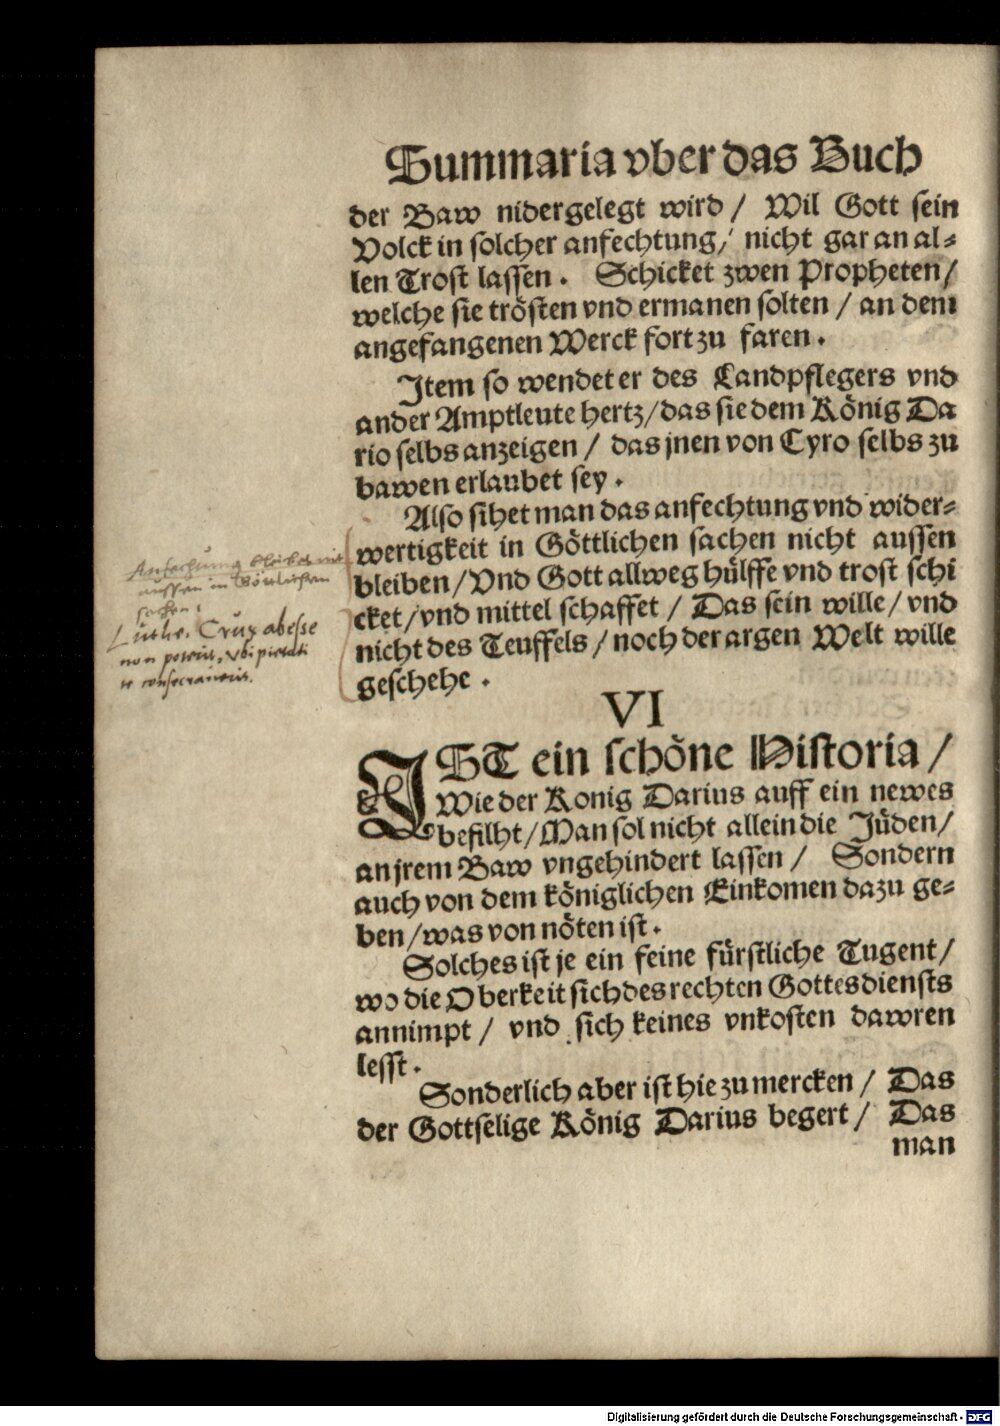 Summaria vber das Buch
der Baw nidergelegt wird / Wil Gott sein
Volck in solcher anfechtung / nicht gar an al=
len Trost lassen. Schicket zwen Propheten /
welche sie trösten vnd ermanen solten / an dem
angefangenen Werck fort zu faren.
Item so wendet er des Landpflegers vnd
ander Amptleute hertz / das sie dem König Da
rio selbs anzeigen / das jnen von Cyro selbs zu
bawen erlaubet sey.
Also sihet man das anfechtung vnd wider=
wertigkeit in Göttlichen sachen nicht aussen
bleiben / Vnd Gott allweg hülffe vnd trost schi
cket / vnd mittel schaffet / Das sein wille / vnd
nicht des Teuffels / noch der argen Welt wille
geschehe.
Anfechtung bleibet nit
aussen in Göttlichen
sachen.
Luthe. Crux abesse
non poterit, vbi pietati
te consecraveris.
VI
IST ein schöne Historia /
Wie der Konig Darius auff ein newes
befilht / Man sol nicht allein die Jüden /
an jrem Baw vngehindert lassen / Sondern
auch von dem königlichen Einkomen dazu ge=
ben / was von nöten ist.
Solches ist je ein feine fürstliche Tugent /
wo die Oberkeit sich des rechten Gottesdiensts
annimpt / vnd sich keines vnkosten dawren
lesst.
Sonderlich aber ist hie zu mercken / Das
der Gottselige König Darius begert / Das
man
Digitalisierung gefördert durch die Deutsche Forschungsgemeinschaft - DFG